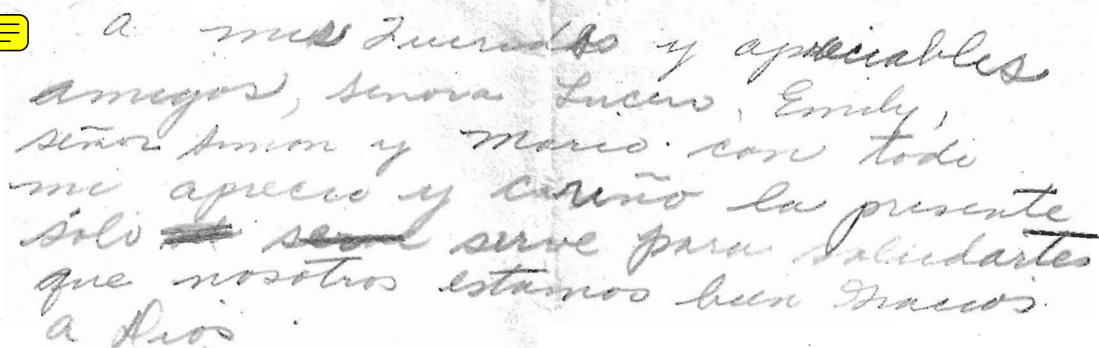 A mis Queridos y apreciables
amigos, senora Lucero, Emily,
señor Simon y Mario. con todo
mi aprecio y cariño la presente
sólo serve para saludartes
que nosotros estamos bien Gracias
a Dios.